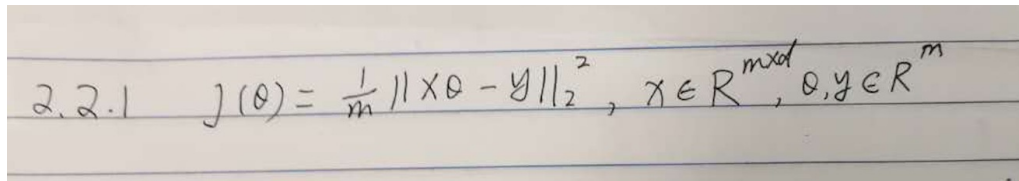 2.2.1 J(θ) = 1/m ||Xθ - y||₂², X ∈ R^{m×d}, θ, y ∈ R^m